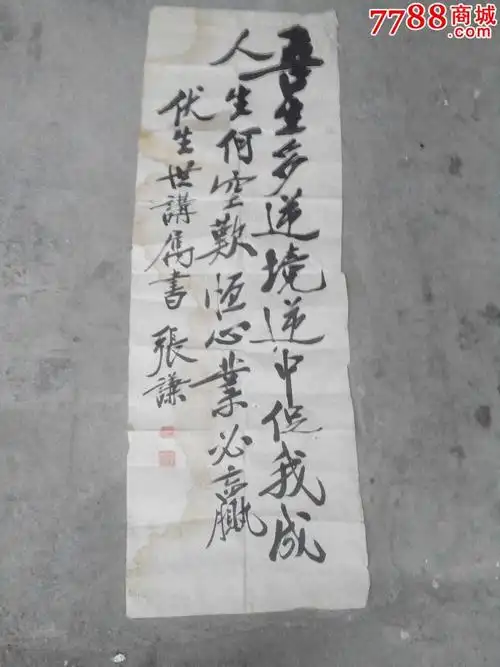 7788商城
吾生多逆境逆中促我成
人生何空歎恒心業必贏
伏生世講属書 張謙